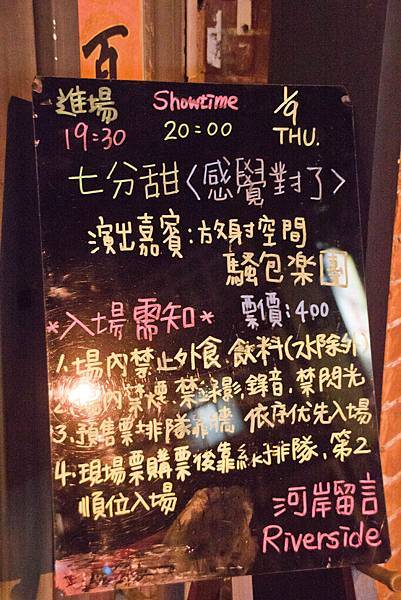 進場 Showtime 1/9
19:30 20:00 THU.
七分甜〈感覺對了〉
演出嘉賓:放射空間
騷包楽團
*入場需知* 票價:400
1.場內禁止外食.飲料(水除外)
2.場內禁煙.禁錄影錄音.禁閃光
3.預售票排隊靠牆 依序优先入場
4.現場票購票後靠 排隊.第2
順位入場
河岸留言
Riverside
百